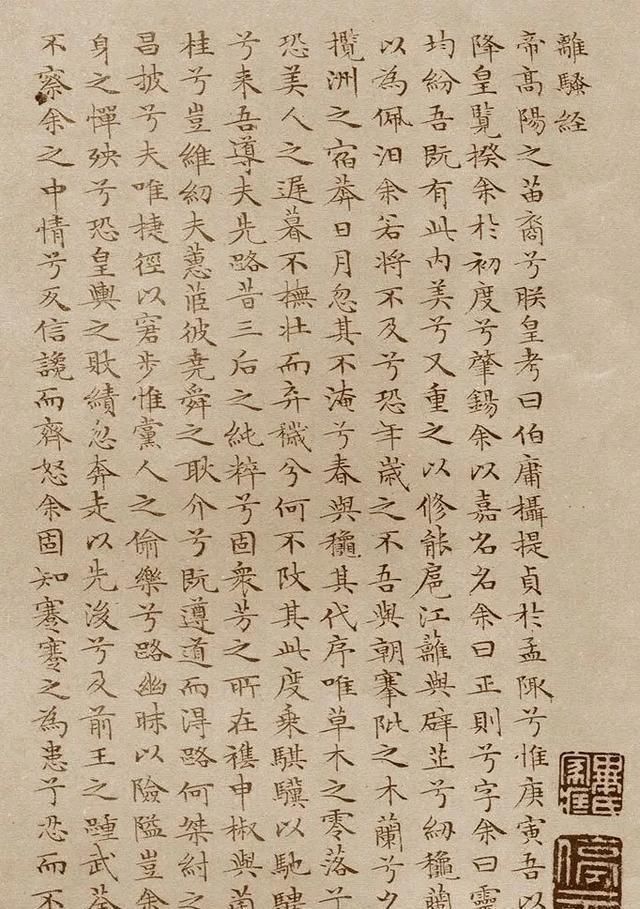 離騷經
帝高陽之苗裔兮朕皇考曰伯庸攝提貞於孟陬兮惟庚寅吾以
降皇覽揆余於初度兮肇錫余以嘉名名余曰正則兮字余曰靈
均紛吾既有此內美兮又重之以修能扈江蘺與辟芷兮紉穐蘭
以為佩汨余若將不及兮恐年歲之不吾與朝搴阰之木蘭兮夕
攬洲之宿莽日月忽其不淹兮春與龝其代序唯草木之零落兮
恐美人之遲暮不撫壯而弃穢兮何不改其此度乘騏驥以馳騁
兮来吾導夫先路昔三后之純粹兮固衆芳之所在襍申椒與菌
桂兮豈維紉夫蕙茞彼堯舜之耿介兮既遵道而得路何桀紂之
昌披兮夫唯捷徑以窘步惟黨人之偷樂兮路幽昧以險隘豈余
身之憚殃兮恐皇輿之敗績忽奔走以先後兮及前王之踵武荃
不察余之中情兮反信讒而齊怒余固知謇謇之為患兮忍而不